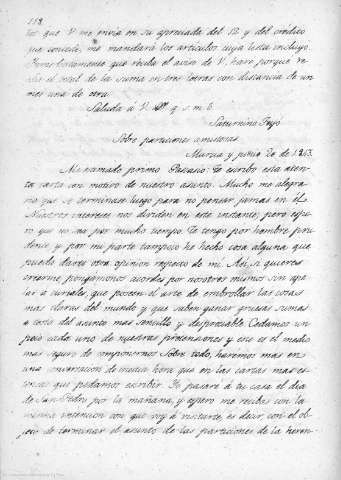 118.
los que V. me envia en su apreciada del 12 y del crédito
que concede, me mandará los artículos cuya lista incluyo.
Inmediatamente que reciba el aviso de V. haré porque re-
ciba el total de la suma en tres letras con distancia de un
mes una de otra.
Saluda á V. q. s. m. b.
Saturnino Trejo
Sobre particiones amistosas.
Murcia y junio 20 de 1843.
Mi amado primo Passano: Te escribo esta aten-
ta carta con motivo de nuestro asunto. Mucho me alegra-
ria que se terminase luego para no pensar jamas en él.
Nuestros intereses nos dividen en este instante, pero espe-
ro que no sea por mucho tiempo. Te tengo por hombre pru-
dente y por mi parte tampoco he hecho cosa alguna que
pueda darte otra opinion respecto de mí. Así, si quieres
creerme, pongámonos acordes por nosotros mismos sin ape-
lar á curiales, que poseen el arte de embrollar las cosas
mas claras del mundo y que saben ganar gruesas sumas
á costa del asunto mas sencillo y despreciable. Cedamos un
poco cada uno de nuestras pretensiones y ese es el medio
mas seguro de componernos. Sobre todo, haremos mas en
una conversacion de media hora que en las cartas mas es-
tensas que podamos escribir. Yo pasaré á tu casa el dia
de San Pedro por la mañana, y espero me recibas con la
misma intencion con que voy á visitarte, es decir, con el ob-
jeto de terminar el asunto de las particiones de la heren-